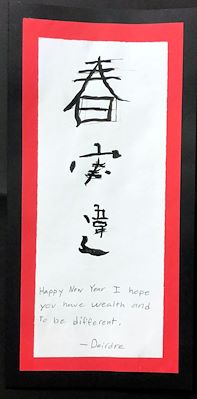 春
安
違
Happy New Year I hope
you have wealth and
to be different.
— Deirdre